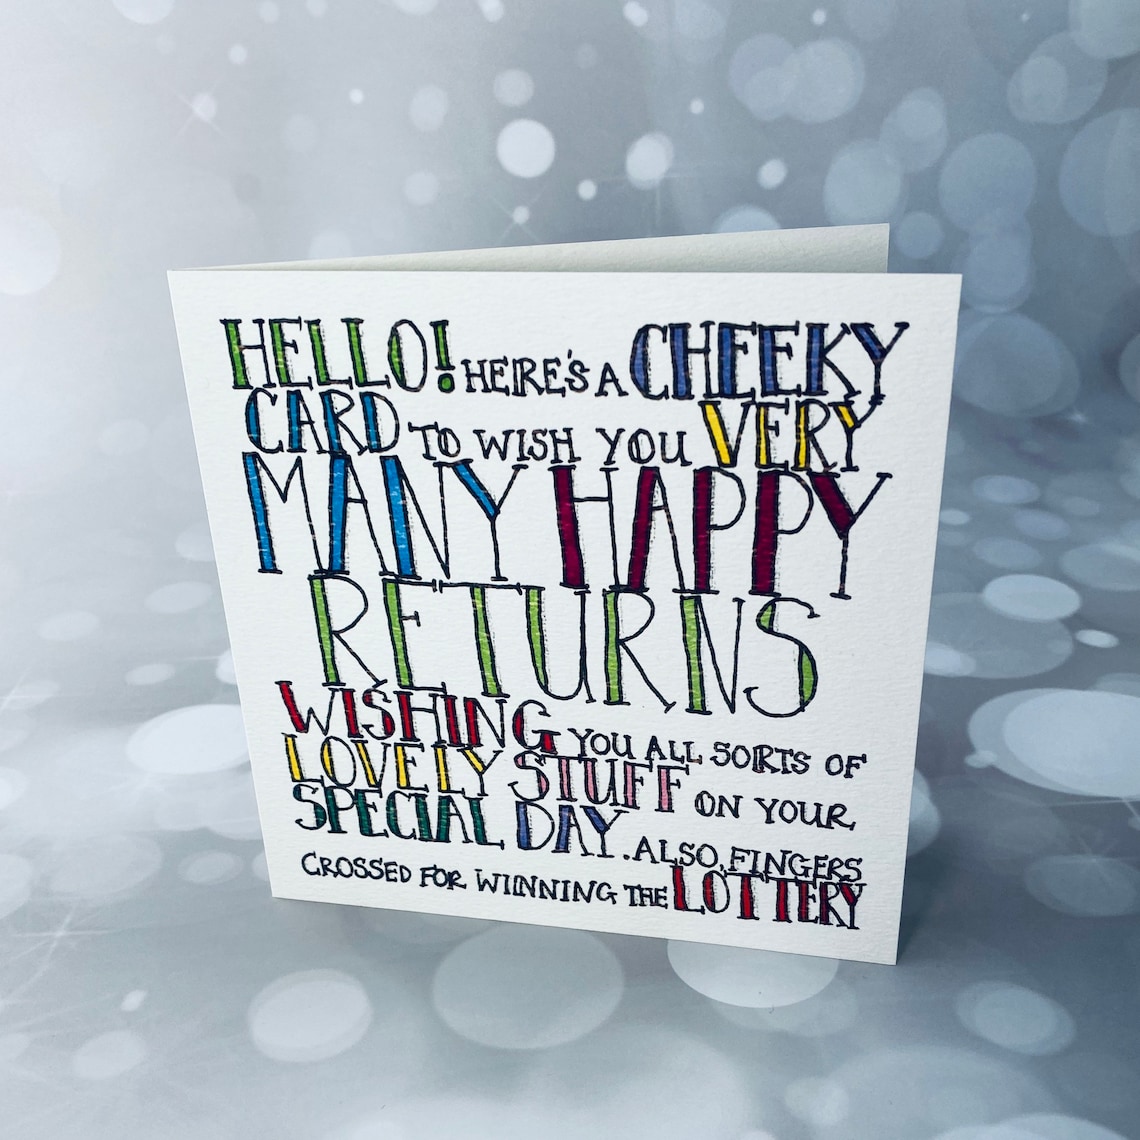 HELLO! HERE'S A CHEEKY
CARD TO WISH YOU VERY
MANY HAPPY
RETURNS
WISHING YOU ALL SORTS OF
LOVELY STUFF ON YOUR
SPECIAL DAY. ALSO, FINGERS
CROSSED FOR WINNING THE LOTTERY